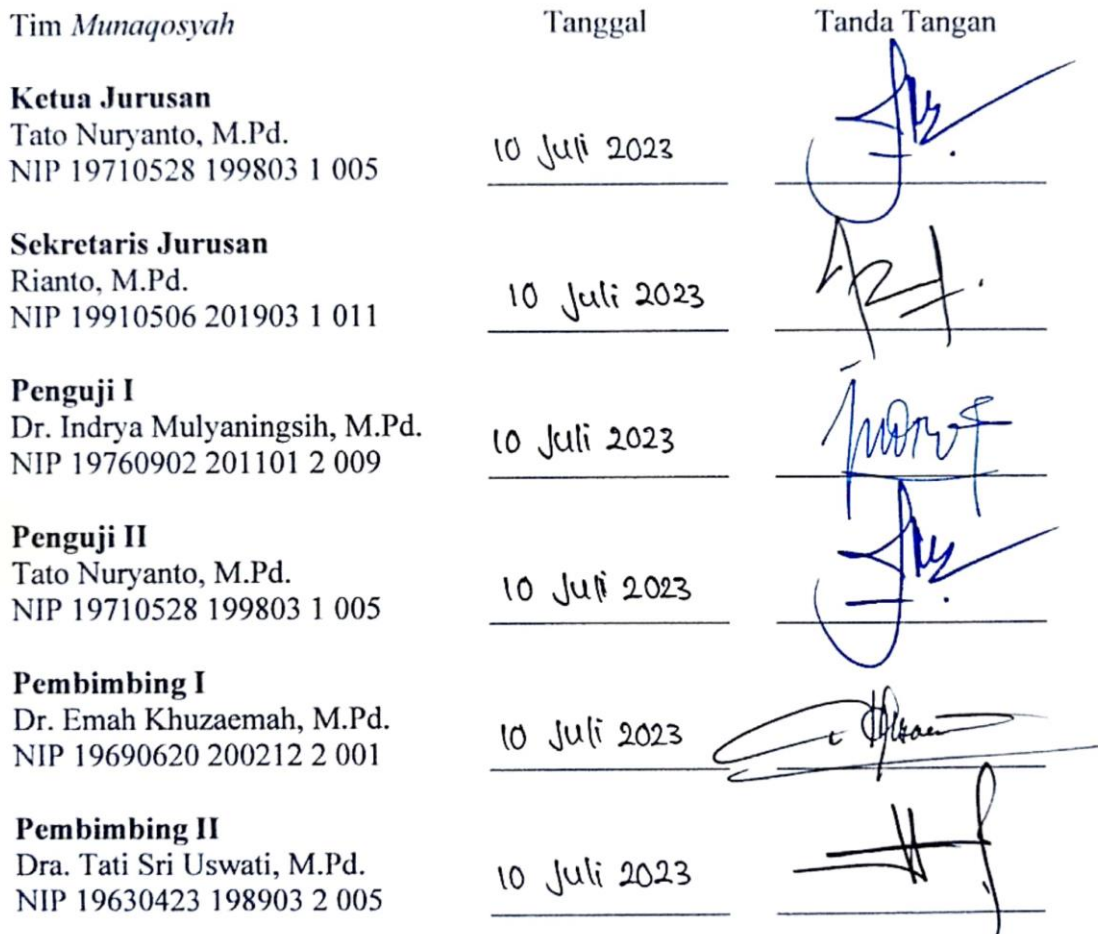 Tim Munaqosyah Tanggal Tanda Tangan
Ketua Jurusan
Tato Nuryanto, M.Pd.
NIP 19710528 199803 1 005
10 Juli 2023
Sekretaris Jurusan
Rianto, M.Pd.
NIP 19910506 201903 1 011
10 Juli 2023
Penguji I
Dr. Indrya Mulyaningsih, M.Pd.
NIP 19760902 201101 2 009
10 Juli 2023
Penguji II
Tato Nuryanto, M.Pd.
NIP 19710528 199803 1 005
10 Juli 2023
Pembimbing I
Dr. Emah Khuzaemah, M.Pd.
NIP 19690620 200212 2 001
10 Juli 2023
Pembimbing II
Dra. Tati Sri Uswati, M.Pd.
NIP 19630423 198903 2 005
10 Juli 2023